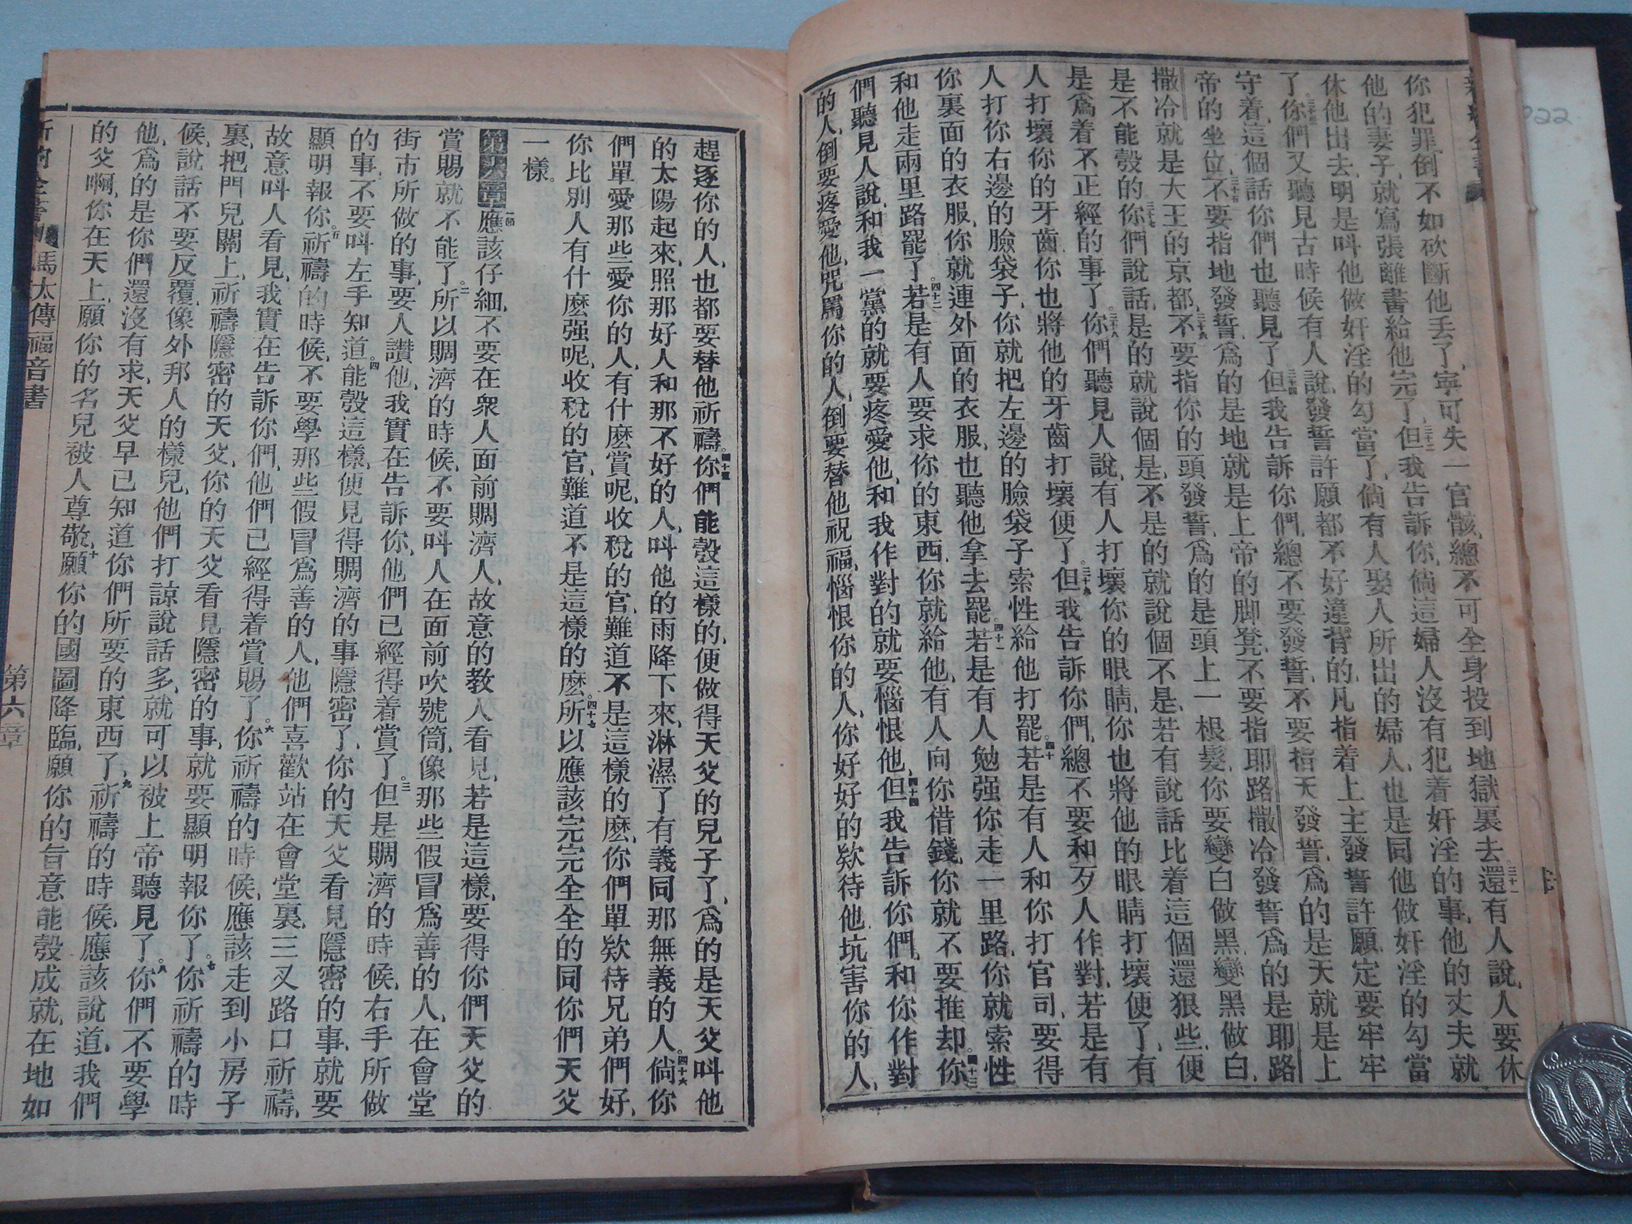 你犯罪倒不如砍斷他丟了寧可失一官骸總不可全身投到地獄裏去還有人說人要休
他的妻子就寫張離書給他完了但我告訴你倘這婦人沒有犯着奸淫的事他的丈夫就
休他出去明是呌他做奸淫的勾當了倘有人娶人所出的婦人也是同他做奸淫的勾當
了你們又聽見古時候有人說發誓許願都不好違背的凡指着上主發誓許願定要牢牢
守着這個話你們也聽見了但我告訴你們總不要發誓不要指天發誓爲的是天就是上
帝的坐位不要指地發誓爲的是地就是上帝的脚凳不要指耶路撒冷發誓爲的是耶路
撒冷就是大王的京都不要指你的頭發誓爲的是頭上一根髮你要變白做黑變黑做白
是不能彀的你們說話是的就說個是不是的就說個不是若有說話比着這個還狠些便
是爲着不正經的事了你們聽見人說有人打壞你的眼睛你也將他的眼睛打壞便了有
人打壞你的牙齒你也將他的牙齒打壞便了但我告訴你們總不要和歹人作對若是有
人打你右邊的臉袋子你就把左邊的臉袋子索性給他打罷若是有人和你打官司要得
你裏面的衣服你就連外面的衣服也聽他拿去罷若是有人勉强你走一里路你就索性
和他走兩里路罷了若是有人要求你的東西你就給他有人向你借錢你就不要推却你
們聽見人說和我一黨的就要疼愛他和我作對的就要惱恨他但我告訴你們和你作對
的人倒要疼愛他咒罵你的人倒要替他祝福惱恨你的人你好好的欵待他坑害你的人
趕逐你的人也都要替他祈禱你們能彀這樣的便做得天父的兒子了爲的是天父呌他
的太陽起來照那好人和那不好的人呌他的雨降下來淋濕了有義同那無義的人倘你
們單愛那些愛你的人有什麽賞呢收稅的官難道不是這樣的麽你們單欵待兄弟們好
你比別人有什麽强呢收稅的官難道不是這樣的麽所以應該完完全全的同你們天父
一樣
第六章應該仔細不要在衆人面前賙濟人故意的教人看見若是這樣要得你們天父的
賞賜就不能了所以賙濟的時候不要呌人在面前吹號筒像那些假冒爲善的人在會堂
街市所做的事要人讚他我實在告訴你他們已經得着賞了但是賙濟的時候右手所做
的事不要呌左手知道能彀這樣便見得賙濟的事隱密了你的天父看見隱密的事就要
顯明報你祈禱的時候不要學那些假冒爲善的人他們喜歡站在會堂裏三叉路口祈禱
故意呌人看見我實在告訴你們他們已經得着賞賜了你祈禱的時候應該走到小房子
裏把門兒關上祈禱隱密的天父你的天父看見隱密的事就要顯明報你了你祈禱的時
候說話不要反覆像外邦人的樣兒他們打諒說話多就可以被上帝聽見了你們不要學
他爲的是你們還沒有求天父早已知道你們所要的東西了祈禱的時候應該說道我們
的父啊你在天上願你的名兒被人尊敬願你的國圖降臨願你的旨意能彀成就在地如
新約全書 馬太傳福音書 第六章